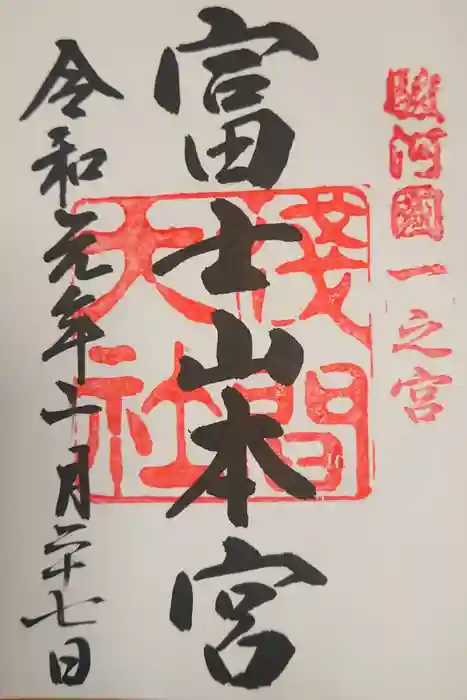 駿河國一之宮
富士山本宮
淺間
大社
令和元年十一月二十七日